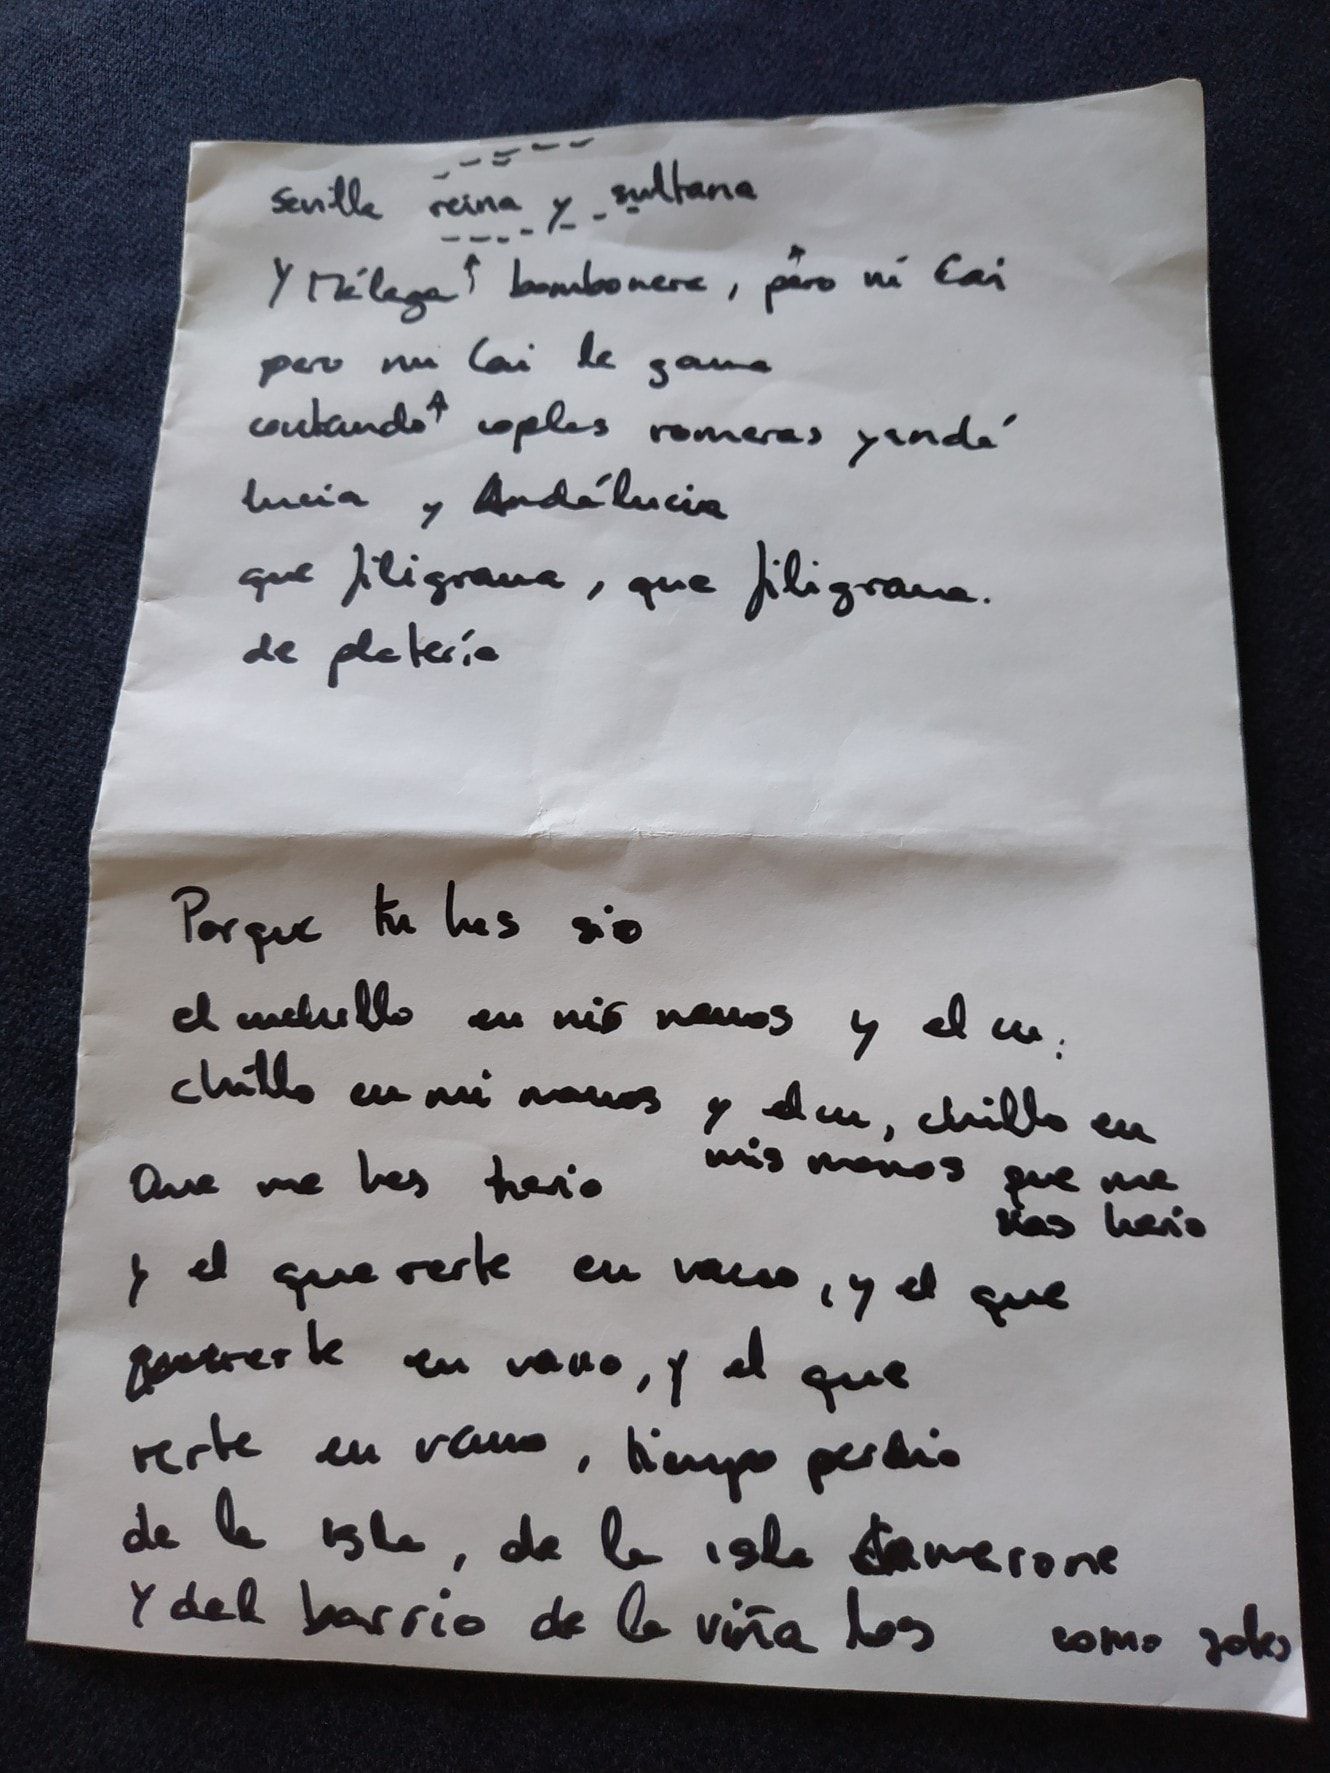 Sevilla reina y sultana
Y Málaga bombonera, pero ni Cai
pero ni Cai le gana
cantando coplas romeras yandá
lucia y Andálucia
que filigrana, que filigrana.
de platería
Porque tu has sio
el cuchillo en mis manos y el cu,
chillo en mi manos y el cu, chillo en
mis manos que me
has herio
Que me has herio
y el quererte en vano, y el que
quererte en vano, y el que
rerte en vano, tiempo perdio
de la isla, de la isla Camerone
Y del barrio de la viña los como